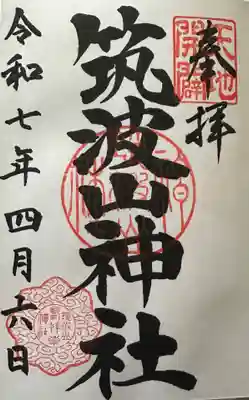 奉拝
天地開闢
筑波山神社
令和七年四月六日